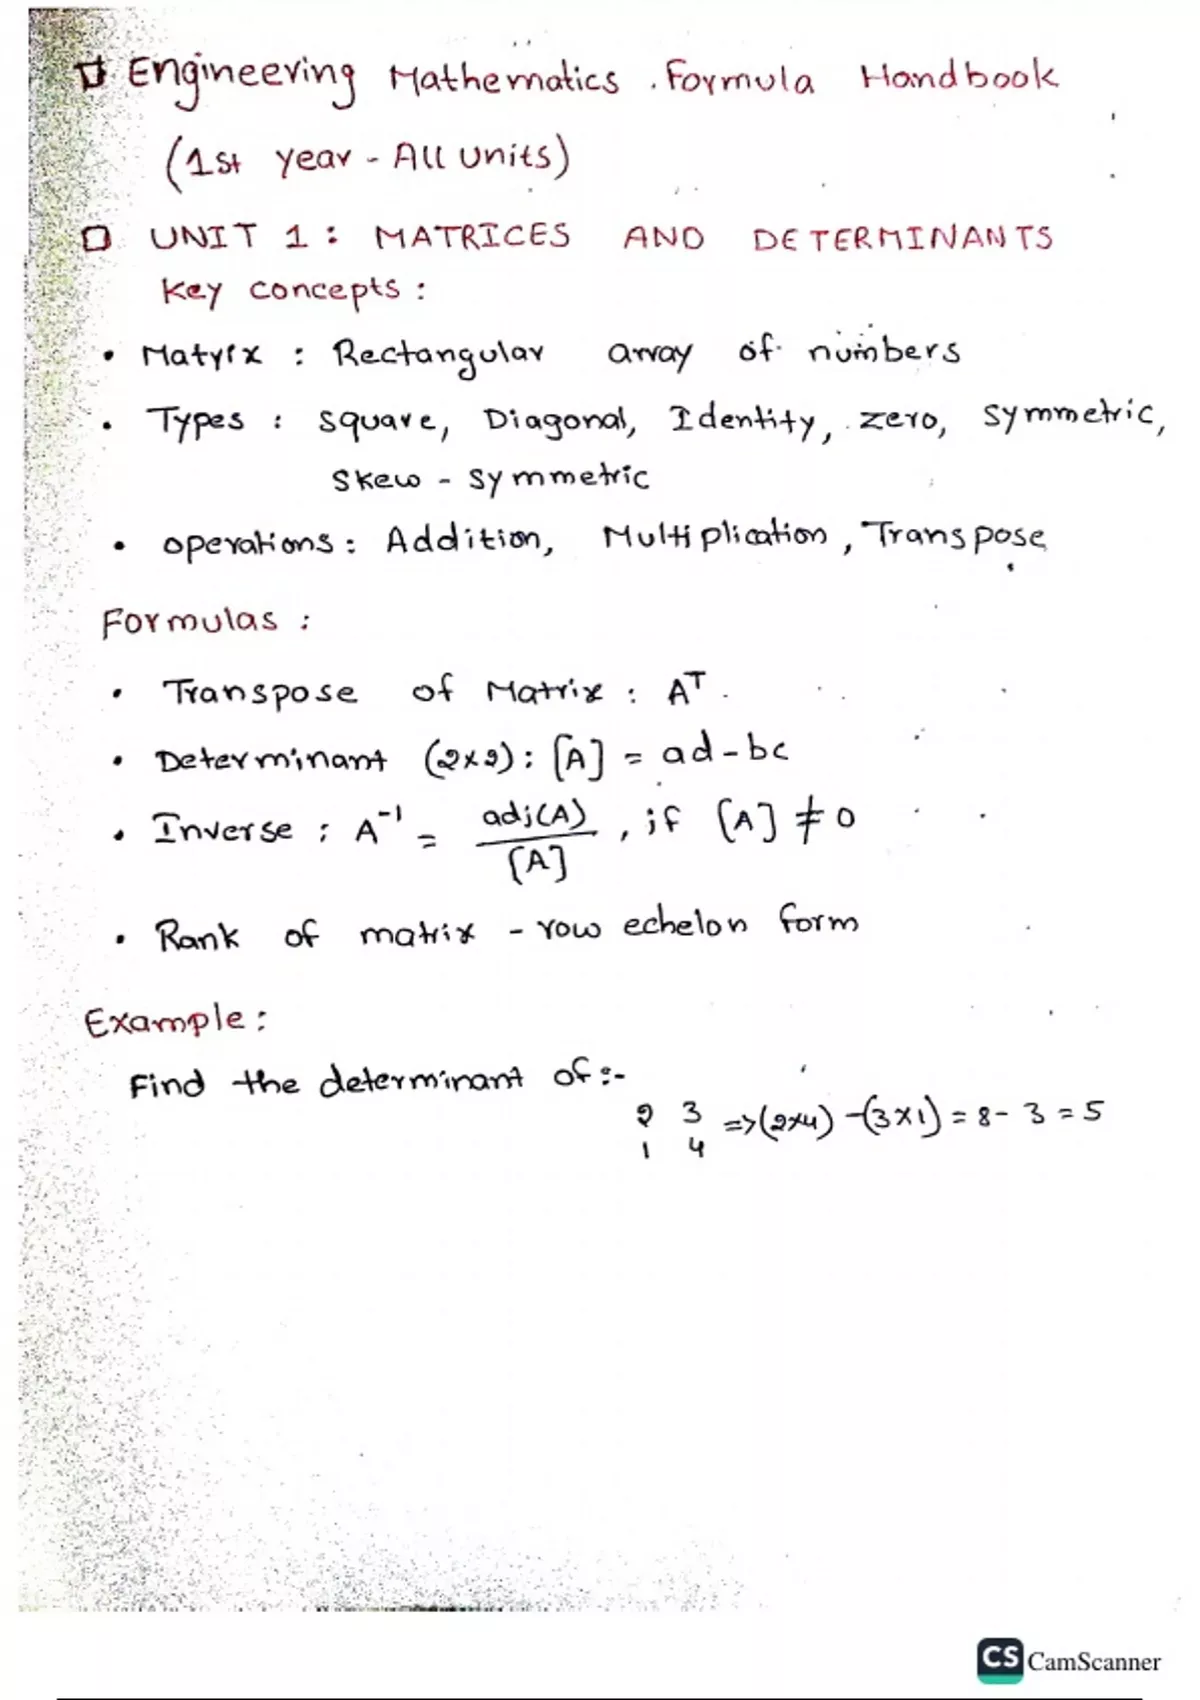 Engineering Mathematics . Formula Handbook
(1st year - All units)
UNIT 1 : MATRICES AND DETERMINANTS
Key concepts :
• Matrix : Rectangular array of numbers
• Types : square, Diagonal, Identity, zero, symmetric,
skew - symmetric
• operations : Addition, Multiplication, Transpose
Formulas :
• Transpose of Matrix : Aᵀ.
• Determinant (2×2) : [A] = ad - bc
• Inverse : A⁻¹ = adj(A) / [A] , if [A] ≠ 0
• Rank of matrix - row echelon form
Example :
Find the determinant of :-
2 3 => (2×4) - (3×1) = 8 - 3 = 5
1 4
CS CamScanner